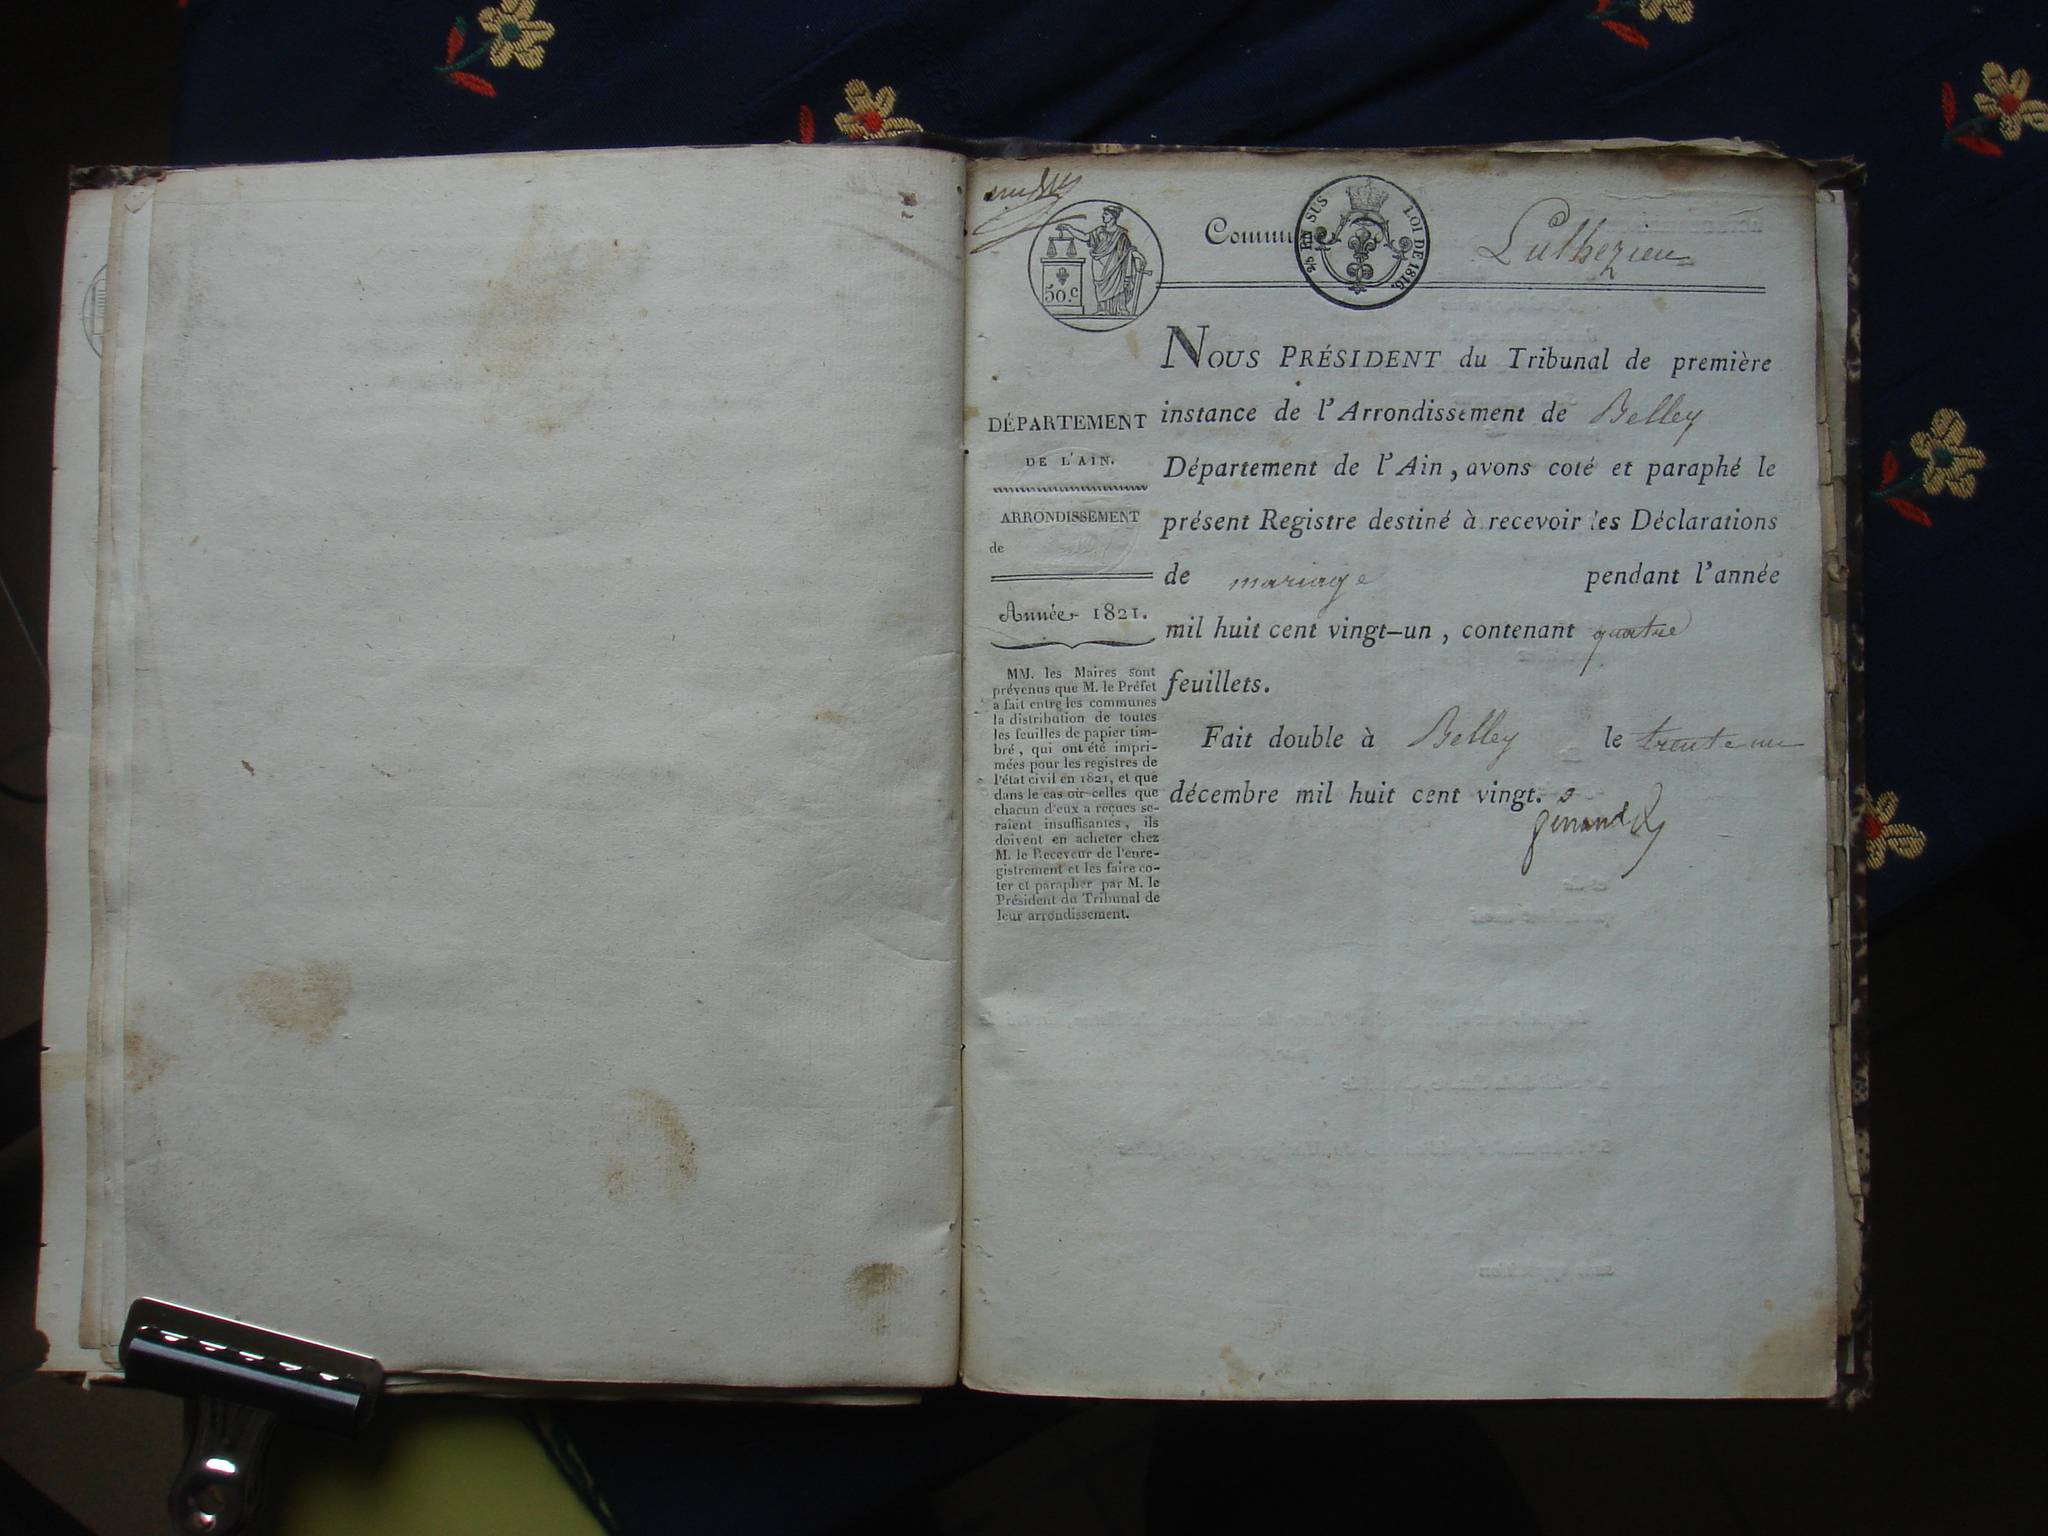 50.c
Commun
25 EN SUS
LOI DE 1816.
Luthezieu
NOUS PRÉSIDENT du Tribunal de première
instance de l'Arrondissement de Belley
Département de l'Ain, avons coté et paraphé le
présent Registre destiné à recevoir les Déclarations
de mariage pendant l'année
mil huit cent vingt-un, contenant quatre
feuillets.
Fait double à Belley le trente un
décembre mil huit cent vingt.
DÉPARTEMENT
DE L'AIN.
ARRONDISSEMENT
de
Année 1821.
MM. les Maires sont
prévenus que M. le Préfet
a fait entre les communes
la distribution de toutes
les feuilles de papier tim-
bré, qui ont été impri-
mées pour les registres de
l'état civil en 1821, et que
dans le cas où celles que
chacun d'eux a reçues se-
raient insuffisantes, ils
doivent en acheter chez
M. le Receveur de l'enre-
gistrement et les faire co-
ter et parapher par M. le
Président du Tribunal de
leur arrondissement.